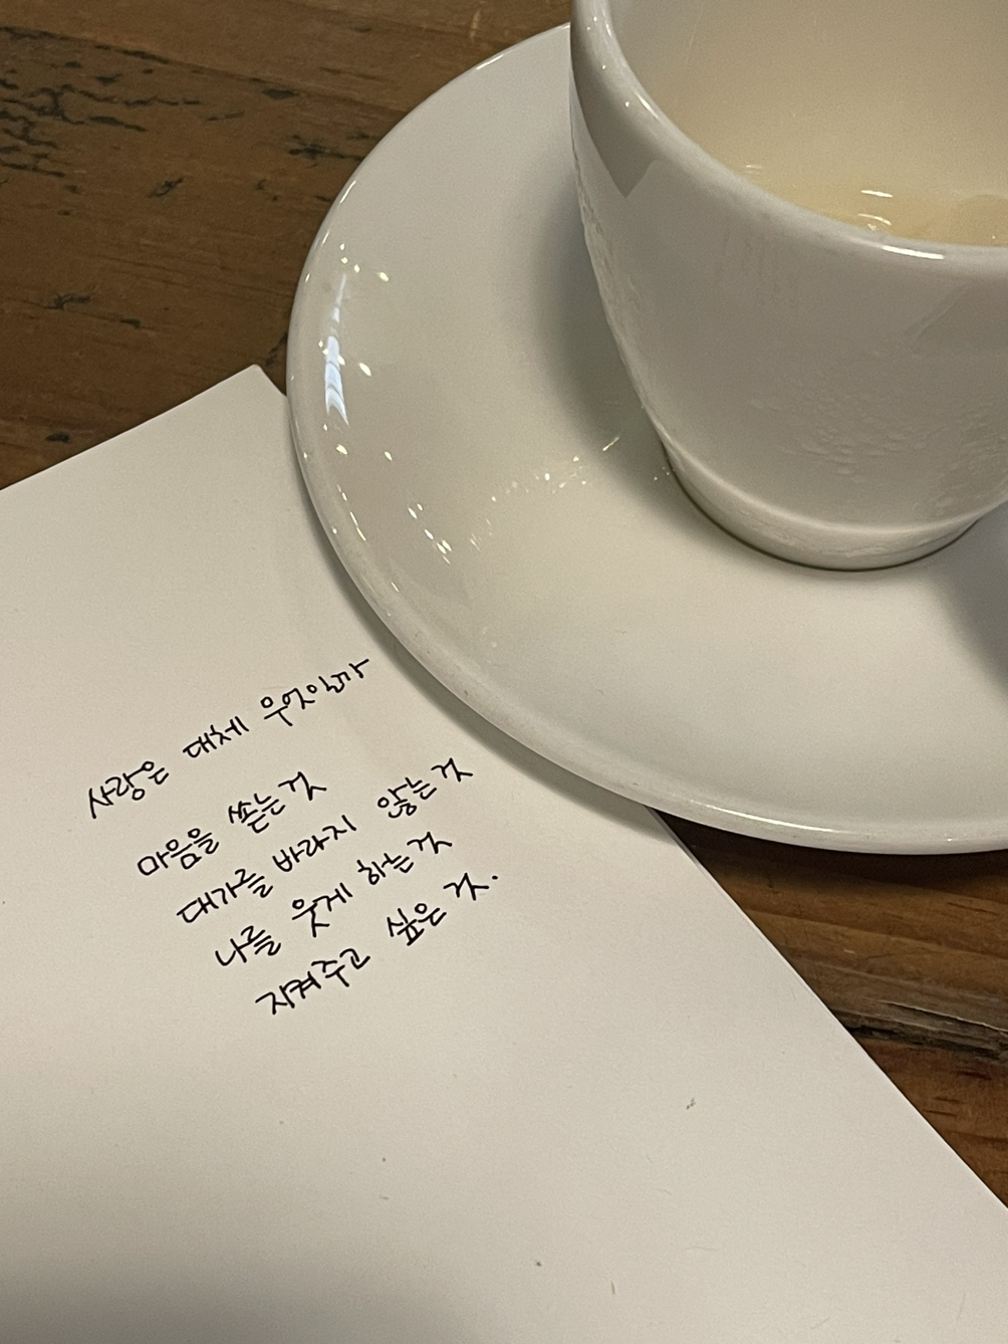 사랑은 대체 무엇인가
마음을 쏟는 것
대가를 바라지 않는 것
나를 웃게 하는 것
지켜주고 싶은 것.